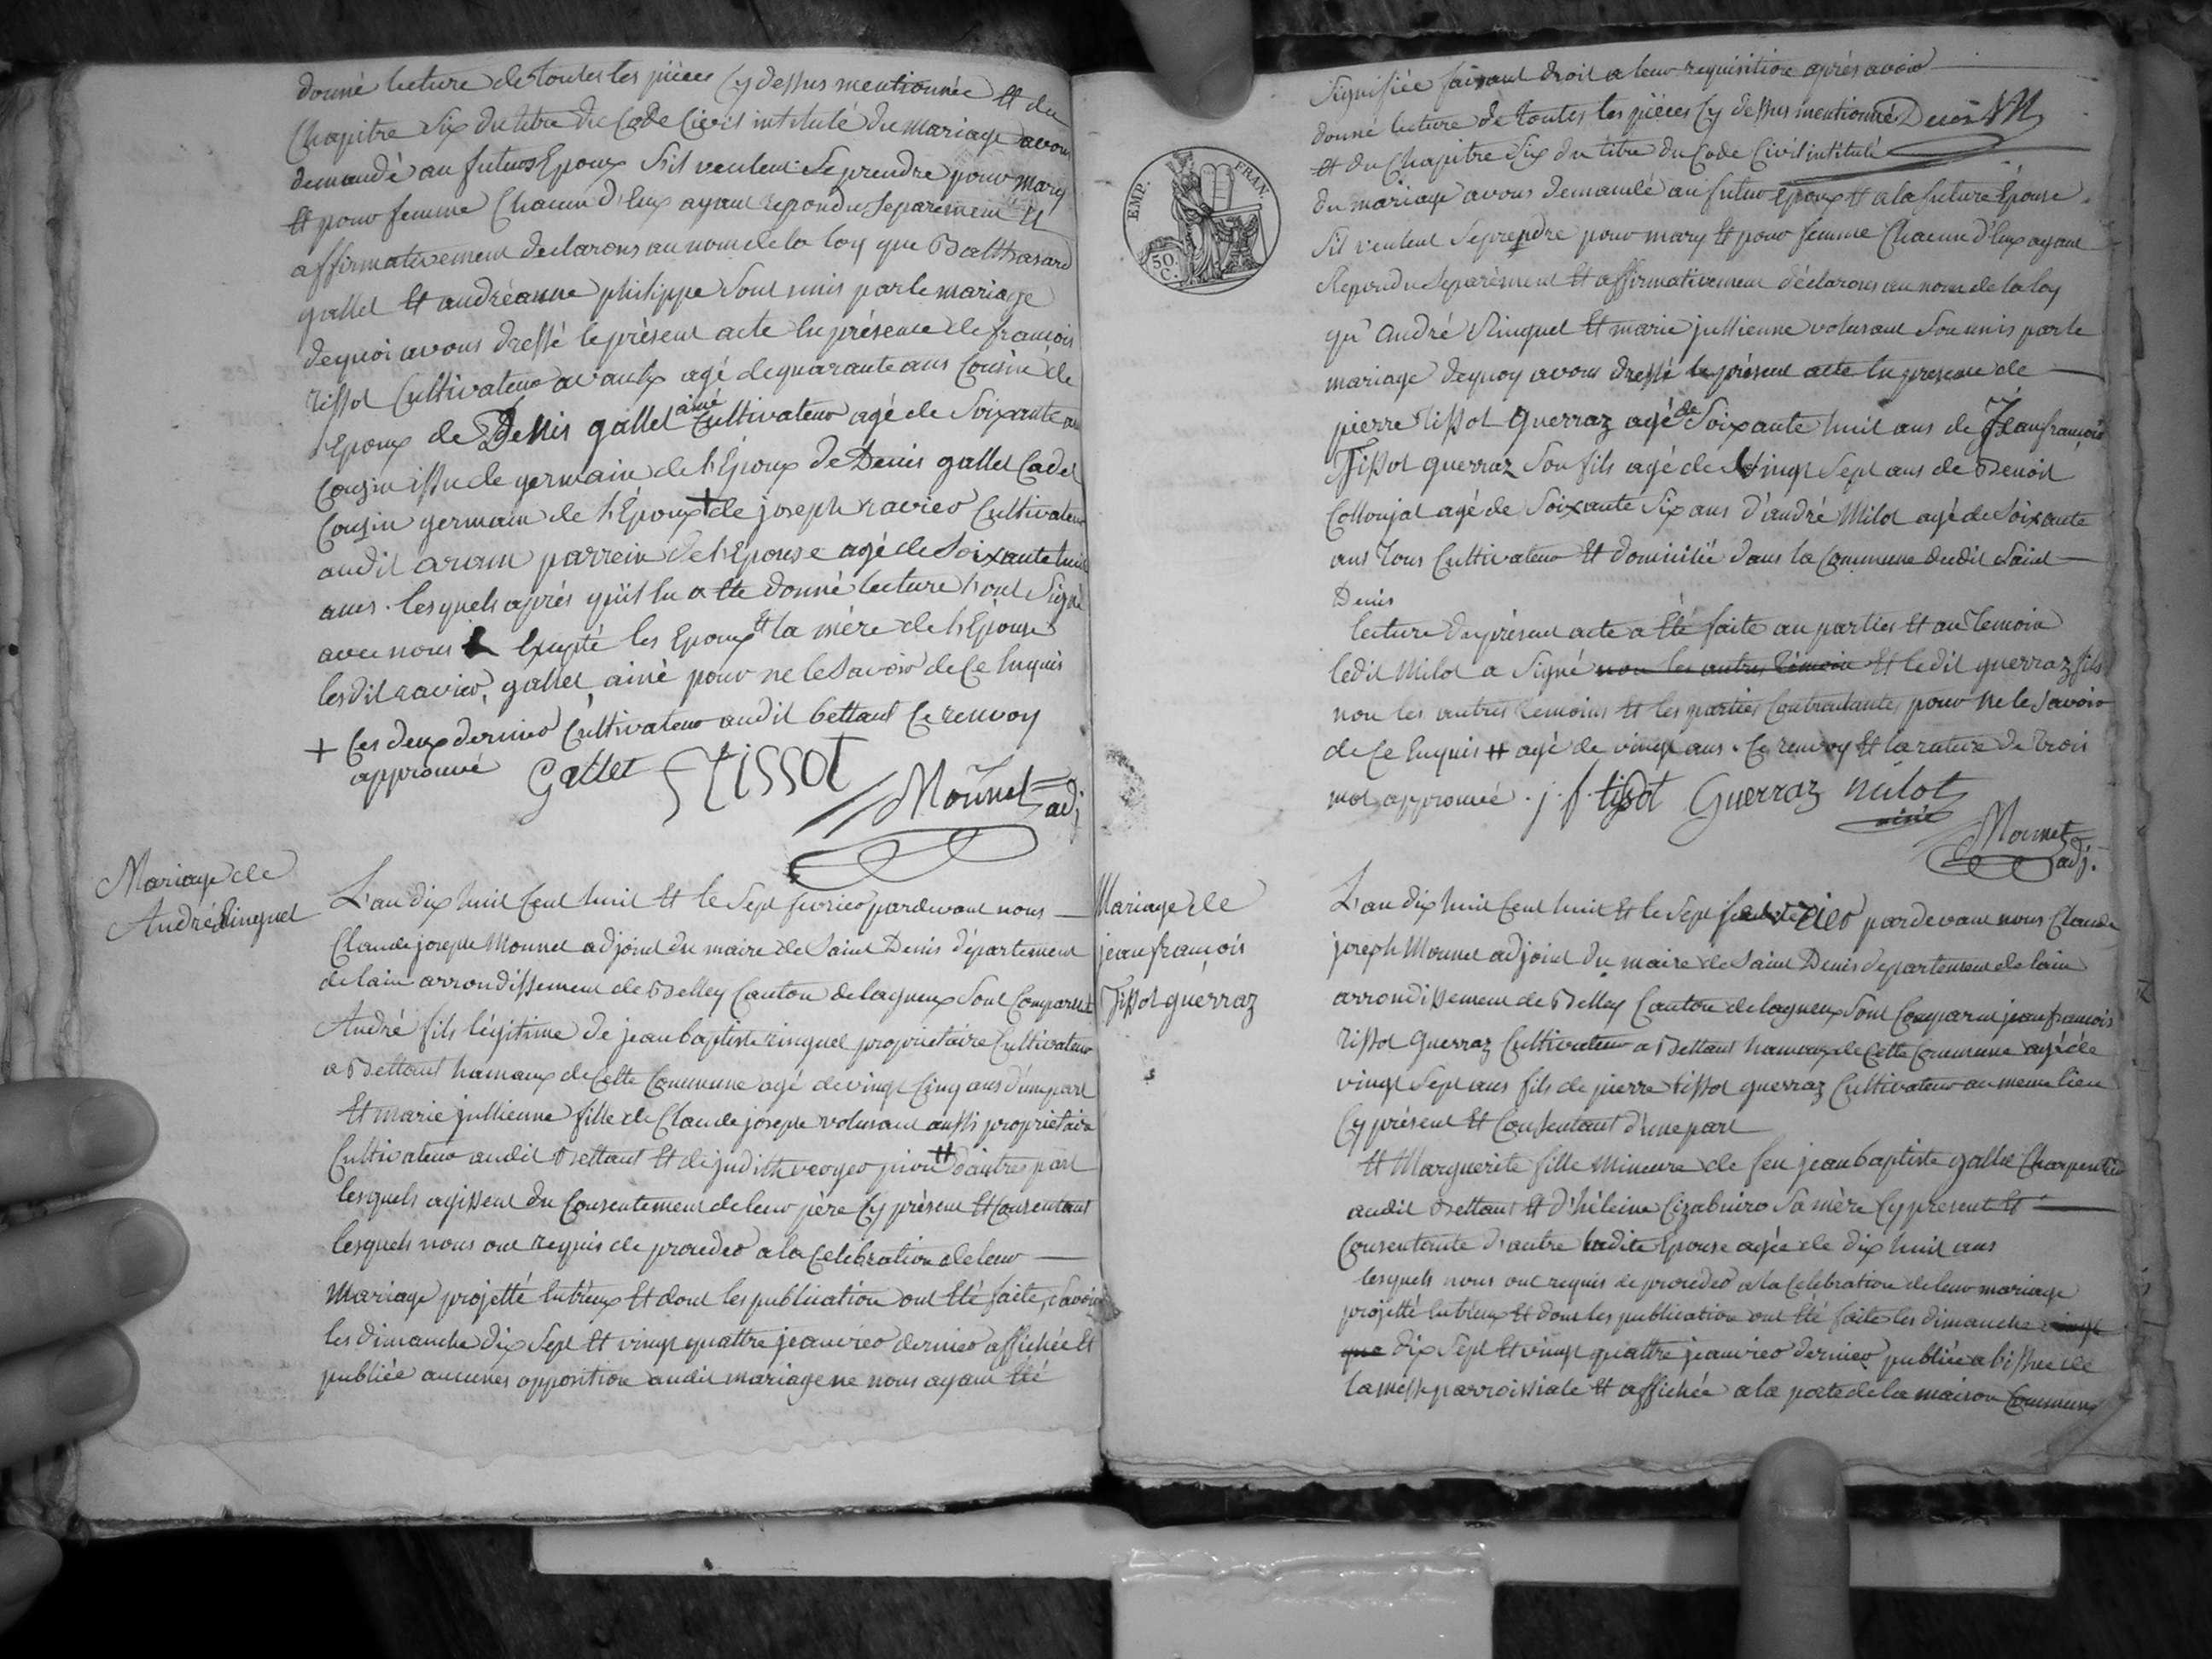 donné lecture de toutes les pièces Cy dessus mentionnée et du
Chapitre Six du titre du Code Civil intitulé du mariage avons
demandé au futurs Epoux S'il veulent Se prendre pour mary
et pour femme Chacun d'Eux ayant repondu Separement et
affirmativement declarons au nom de la loy que Balthasard
gallet et andréanne philippe Sont unis par le mariage
de quoi avons dressé le présent acte En présence de françois
tissot Cultivateur agé de quarante ans Cousin de
l'Epoux de Denis gallet ainé Cultivateur agé de Soixante ans
Cousin issu de germain de l'Epoux de Denis gallet Cadet
Cousin germain de l'Epoux + de joseph ravier Cultivateur
audit parrein de l'Epouse agé de Soixante huit
ans. lesquels après qu'il en a été donné lecture l'ont Signé
avec nous Excepté les Epoux et la mère de l'Epouse
lesdit ravier, gallet ainé pour ne le Savoir de Ce Enquis
+ Ces deux dernier Cultivateur audit bettant Ce renvoy
approuvé Gallet F tissot
Mounet adj
Mariage de
André Ringuet
L'an dix huit Cent huit et le Sept fevrier pardevant nous
Claude joseph Mounet adjoint du maire de Saint Denis département
de lain arrondissement de Belley Canton de lagneux Sont Comparut
André fils légitime de jean baptiste ringuet proprietaire Cultivateur
a Bettant hamaux de Cette Commune agé de vingt Cinq ans d'une part
Et marie jullienne fille de Claude joseph volusant aussi proprietaire
Cultivateur audit Bettant et de judith # d'autre part
lesquels agissent du Consentement de leur père Cy présent et Consentant
lesquels nous ont requis de proceder a la Celebration de leur
Mariage projetté Entreux et dont les publication ont été faite, Savoir
les dimanche dix Sept et vingt quattre jeanvier dernier affichée et
publiée aucunes opposition audit mariage ne nous ayant été
EMP. FRAN.
50. C.
Signifiée faisant droit a leur requisition après avoir
donné lecture de toutes les pièces Cy dessus mentionné
et du Chapitre Six du titre du Code Civil intitulé
du mariage avons demandé au futur Epoux et a la future Epouse
S'il veulent Se prendre pour mary et pour femme Chacun d'Eux ayant
Repondu Separément et affirmativement déclarons au nom de la loy
qu'André Ringuet et marie jullienne volusant Son unis par le
mariage de quoy avons dressé le présent acte En presence de
pierre tissot Guerraz agé de Soixante huit ans de Jean françois
Tissot guerraz Son fils agé de vingt Sept ans de Benoit
Collonjat agé de Soixante Six ans d'andré Milot agé de Soixante
ans Tous Cultivateur et domicilié dans la Commune dudit Saint
Denis
lecture du présent acte a été faite au parties et au temoin
ledit Milot a Signé non les autres témoin et ledit guerraz fils
non les autres temoins et les parties Contractantes pour ne le Savoir
de Ce Enquis # agé de vingt ans. Ce renvoy et la rature de trois
mot approuvée. j. f. tissot Guerraz milot
Mounet
adj.
Mariage de
jean françois
Tissot guerraz
L'an dix huit Cent huit et le Sept fevrier pardevant nous Claude
joseph Mounet adjoint du maire de Saint Denis departement de lain
arrondissement de Belley Canton de lagneux Sont Comparut jean françois
tissot Guerraz Cultivateur a Bettant hamaux de Cette Commune agé de
vingt Sept ans fils de pierre tissot guerraz Cultivateur au meme lieu
Cy présent et Consentant d'une part
et Marguerite fille Mineure de feu jean baptiste gallet Charpentier
audit Bettant et d'héleine Sa mère Cy present et
Consentante d'autre ladite Epouse agée de dix huit ans
lesquels nous ont requis de proceder a la Celebration de leur mariage
projetté Entreux et dont les publication ont été faite les dimanche
dix Sept et vingt quattre jeanvier dernier publiée a l'issue de
la messe parroissiale et affichée a la porte de la maison Commune